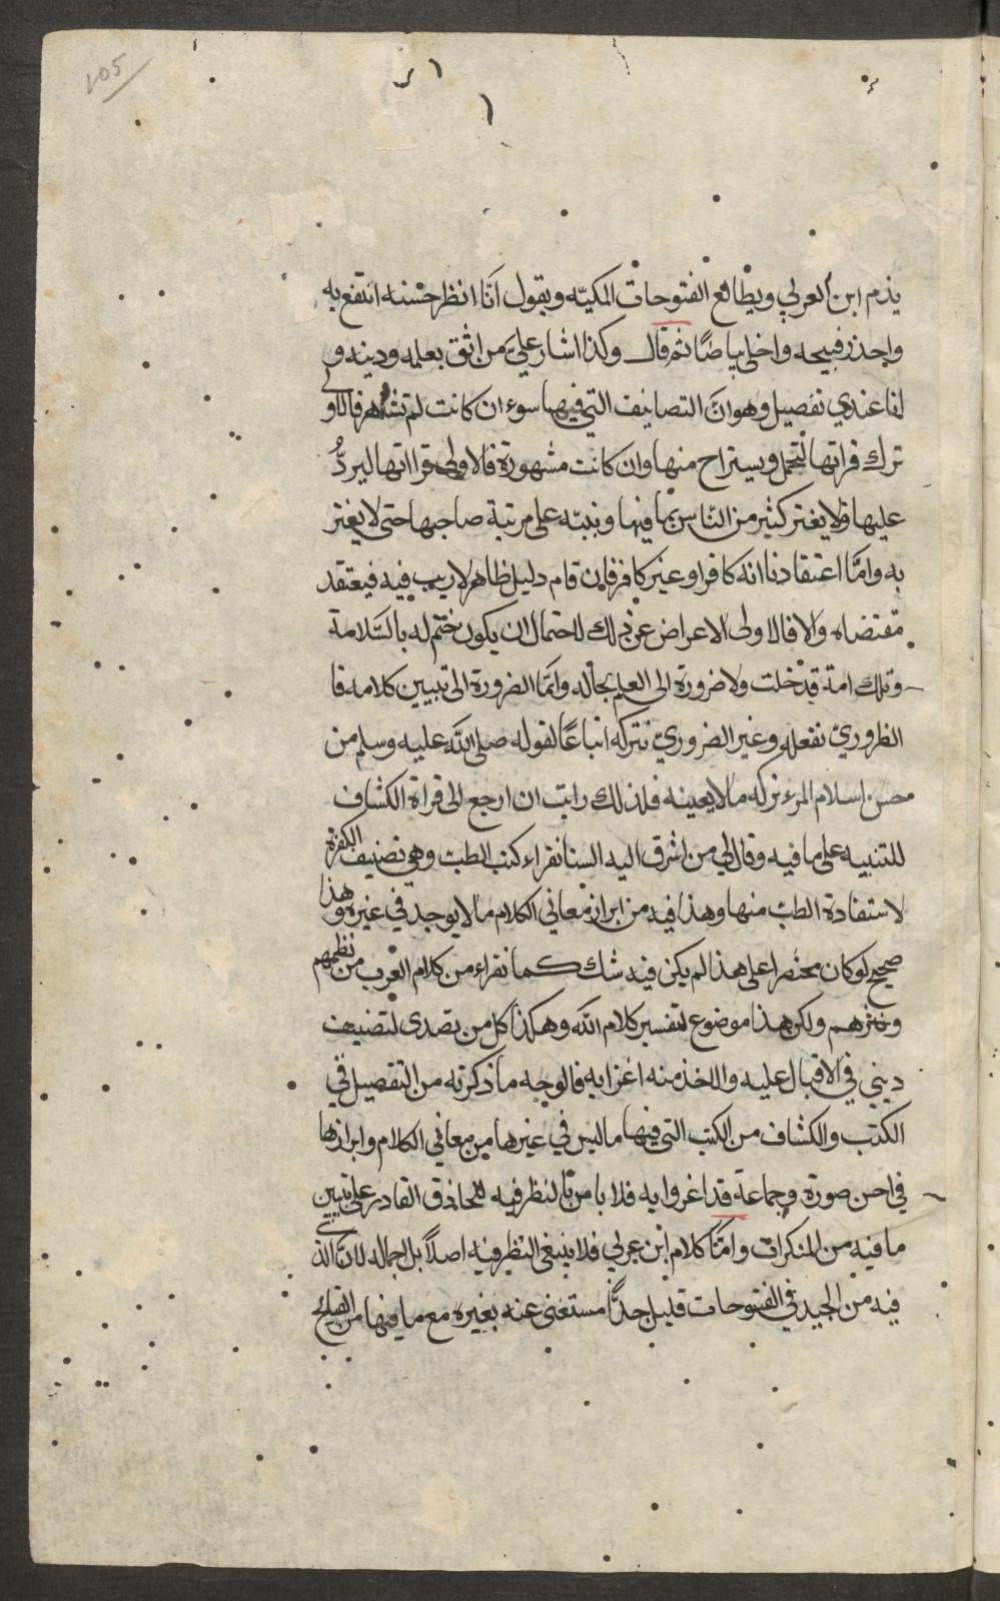 105
يذم ابن العربي ويطالع الفتوحات المكيّه ويقول انّا انظر حسنه انتفع به
واحذر قبيحه واخلى بياضًا ثم قال وكذا اشار عليّ من اثق بعلمه ودينه و
انا عندي تفصيل وهو انّ التصانيف التي فيها سوء ان كانت لم تشتهر فالاولى
ترك قراتها لتخمل ويستراح منها وان كانت مشهورة فالاولى قراتها ليردُّ
عليها ولا يغتر كثير من النّاس بما فيها وينبّه على مرتبة صاحبها حتى لا يغتر
به وامّا اعتقادنا انه كافر او غير كافر فان قام دليل ظاهر لا ريب فيه فيعتقد
مقتضاه والا فالاولى الاعراض عن ذلك لاحتمال ان يكون ختم له بالسّلامة
وتلك امة قد خلت ولا ضرورة الى العلم بحاله وانّما الضرورة الى تبيين كلامه فا
الظروريّ نفعله وغير الضروريّ نتركه اتباعًا لقوله صلى اللّه عليه وسلم من
حسن اسلام المرء تركه ما لا يعينه فلذلك رايت ان ارجع الى قراة الكشاف
للتنبيه على ما فيه وقال لي من اشرق اليه السنا نقراء كتب الطب وهي تصنيف الكفرة
لاستفادة الطبّ منها وهذا فيه من ابراز معاني الكلام ما لا يوجد في غيره وهذا
صحيح لو كان مختصرا على هذا لم يكن فيه شك كما نقراء من كلام العرب من نظمهم
ونثرهم ولكن هذا موضوع لتفسير كلام اللّه وهكذا كل من يصدى لتصنيف
ديني في الاقبال عليه والاخذ منه اغرا به فالوجه ما ذكرته من التفصيل في
الكتب والكشاف من الكتب التى فيها ما ليس في غيرها من معاني الكلام وابرازها
في احسن صورة وجماعة قد اغروا به فلا باس بالنظر فيه للحاذق القادر على تبيين
ما فيه من المنكرات وامّا كلام ابن عربي فلا ينبغي النظر فيه اصلًا بل اجماله لانّ الذى
فيه من الجيد في الفتوحات قليل جدًّا مستغنى عنه بغيره مع ما فيها من القبايح